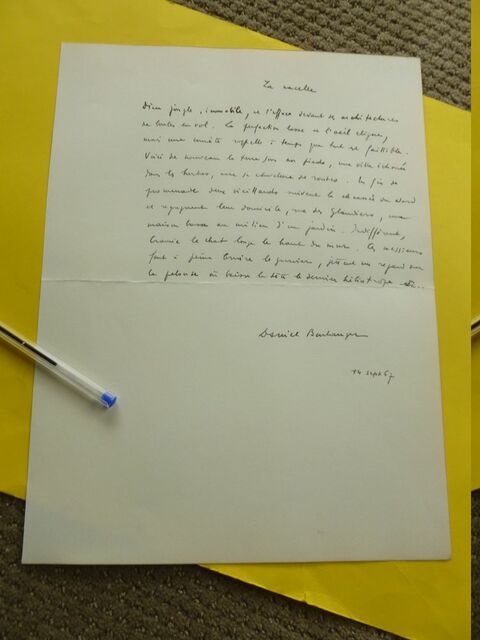 La nacelle
Dieu jongle, immobile, et s'efface devant ses architectures
de boules en vol. La perfection lasse et l'œil cligne,
mais une comète rappelle à temps que tout est faillible.
Voici de nouveau la terre sous nos pieds, une ville échouée
dans les herbes, avec sa chevelure de routes. En fin de
promenade deux vieillards suivent la chaussée du Nord
et regagnent leur domicile, rue des Glandiers, une
maison basse au milieu d'un jardin. Indifférent,
le chat longe le haut du mur. Les messieurs
font à peine bruire le gravier, jettent un regard sur
la pelouse où baisse la tête le dernier héliotrope
Daniel Boulanger
14 sept 67